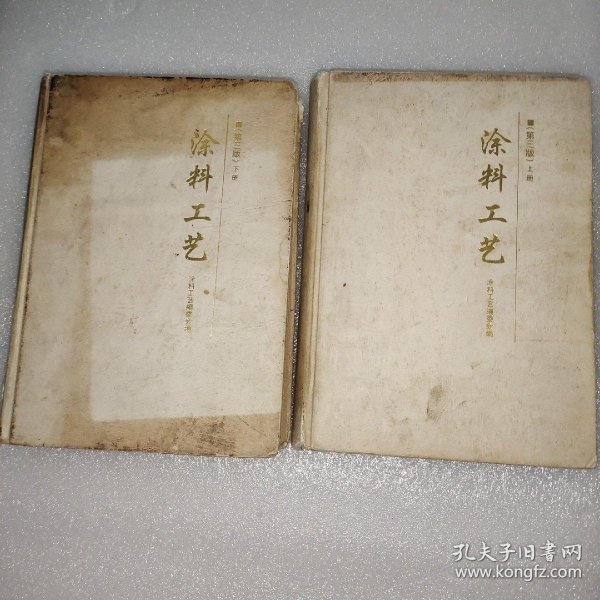 涂料工艺
（第三版）下册
涂料工艺编委会编
涂料工艺
（第三版）上册
涂料工艺编委会编
孔夫子旧书网
www.kongfz.com